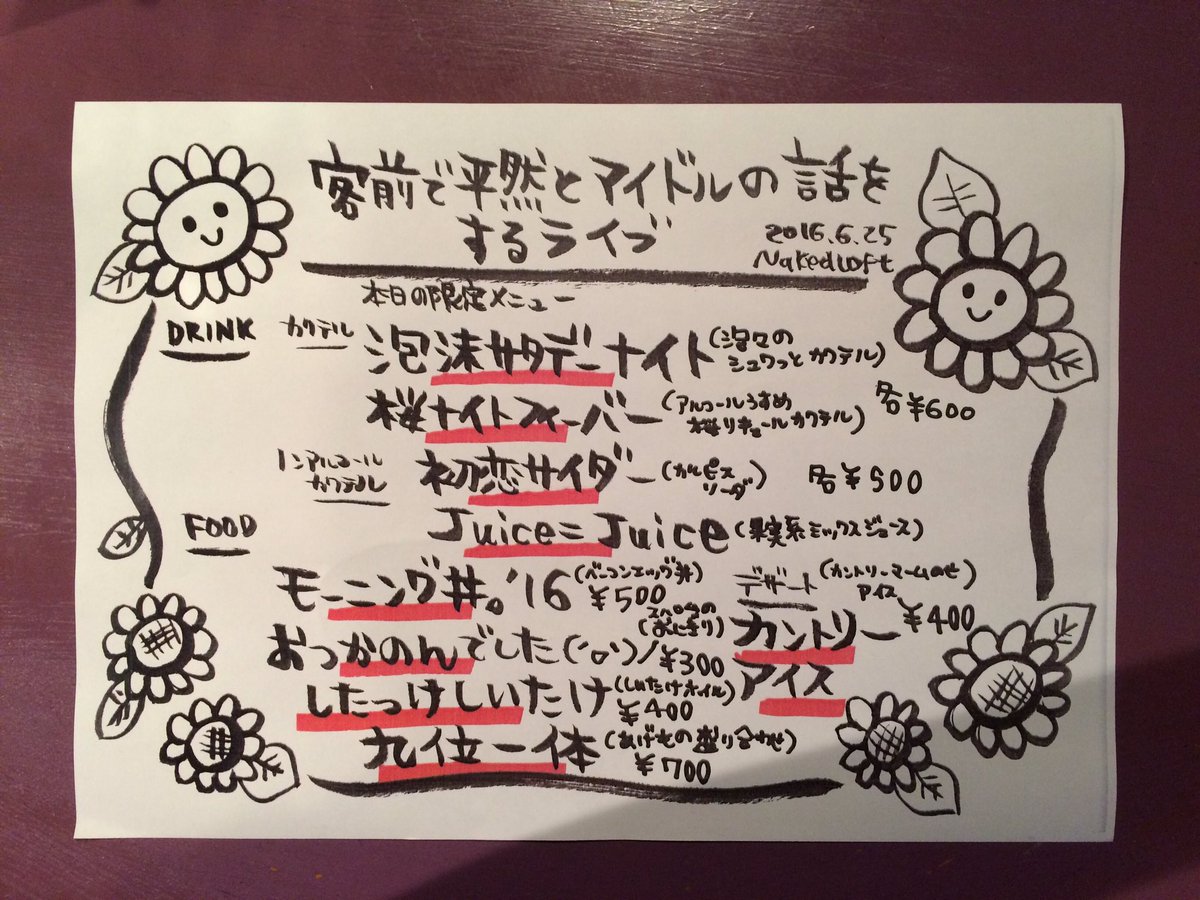 客前で平然とアイドルの話を
するライブ
2016.6.25
NakedLoft
本日の限定メニュー
DRINK
カクテル
泡沫サタデーナイト(泡々のシュワっとカクテル)
桜ナイトフィーバー(アルコールうすめ桜リキュールカクテル)
各¥600
ノンアルコールカクテル
初恋サイダー(カルピスソーダ)
各¥500
Juice=Juice(果実系ミックスジュース)
FOOD
モーニング丼。'16(ベーコンエッグ丼)
¥500
おっかのんでした(´ο`)/(スペシャルのおにぎり)
¥300
したっけしいたけ(しいたけオイル)
¥400
九位一体(あげもの盛り合わせ)
¥700
デザート
(カントリーマームのせアイス)
¥400
カントリー
アイス